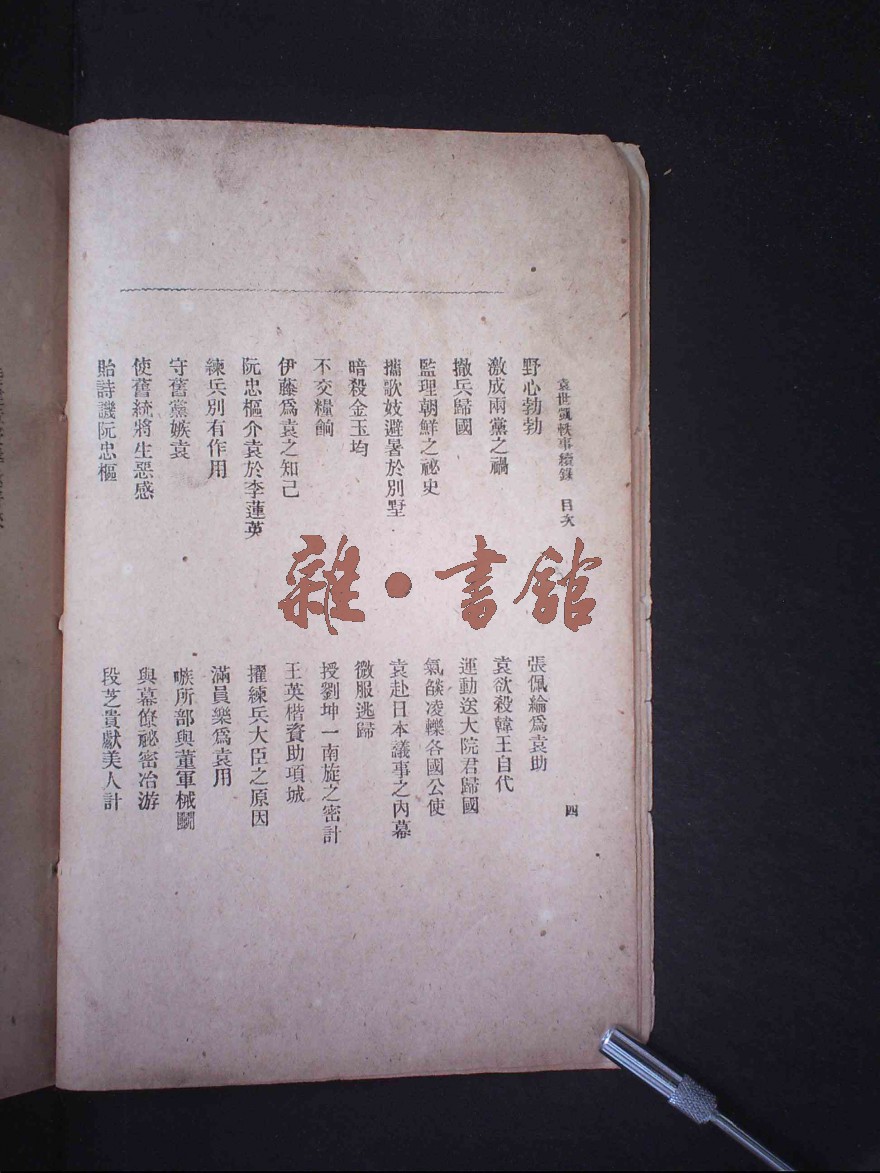 袁世凱軼事續錄 目次 四
野心勃勃
張佩綸爲袁助
激成兩黨之禍
袁欲殺韓王自代
撤兵歸國
運動送大院君歸國
監理朝鮮之祕史
氣燄凌轢各國公使
攜歌妓避暑於別墅
袁赴日本議事之內幕
暗殺金玉均
微服逃歸
不交糧餉
授劉坤一南旋之密計
伊藤爲袁之知己
王英楷資助項城
阮忠樞介袁於李蓮英
擢練兵大臣之原因
練兵別有作用
滿員樂爲袁用
守舊黨嫉袁
嗾所部與董軍械鬭
使舊統將生惡感
與幕僚祕密冶游
貽詩譏阮忠樞
段芝貴獻美人計
雜·書館